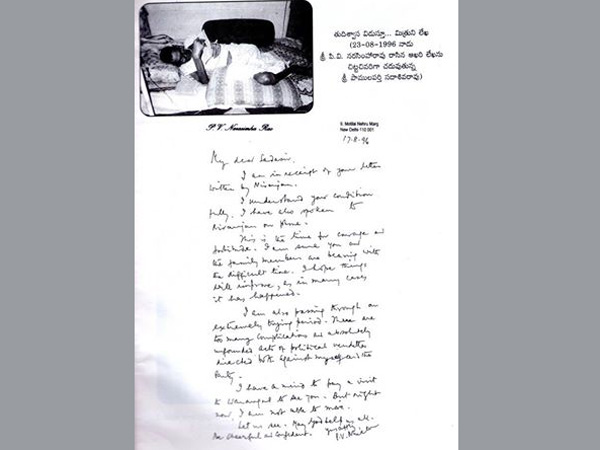 తుదిశ్వాస విడుస్తూ... మిత్రుని లేఖ
(23-08-1996 నాడు
శ్రీ పి.వి. నరసింహారావు రాసిన ఆఖరి లేఖను
చిట్టచివరిగా చదువుతున్న
శ్రీ పాములపర్తి సదాశివరావు)
P. V. Narasimha Rao
9, Motilal Nehru Marg
New Delhi 110 001
17-8-96
My dear Sadasiv,
I am in receipt of your letter
written by Niranjan.
I understand your condition
fully. I have also spoken to
Niranjan on phone.
This is the time for courage and
fortitude. I am sure you and
the family members are bearing with
the difficult time. I hope things
will improve, as in many cases
it has happened.
I am also passing through an
extremely trying period. There are
too many complications and absolutely
unfounded acts of political vendetta
directed both against myself and the
Party.
I have a mind to pay a visit
to Warangal to see you. But right
now, I am not able to move.
Let us see. May God help us all.
Be cheerful and confident.